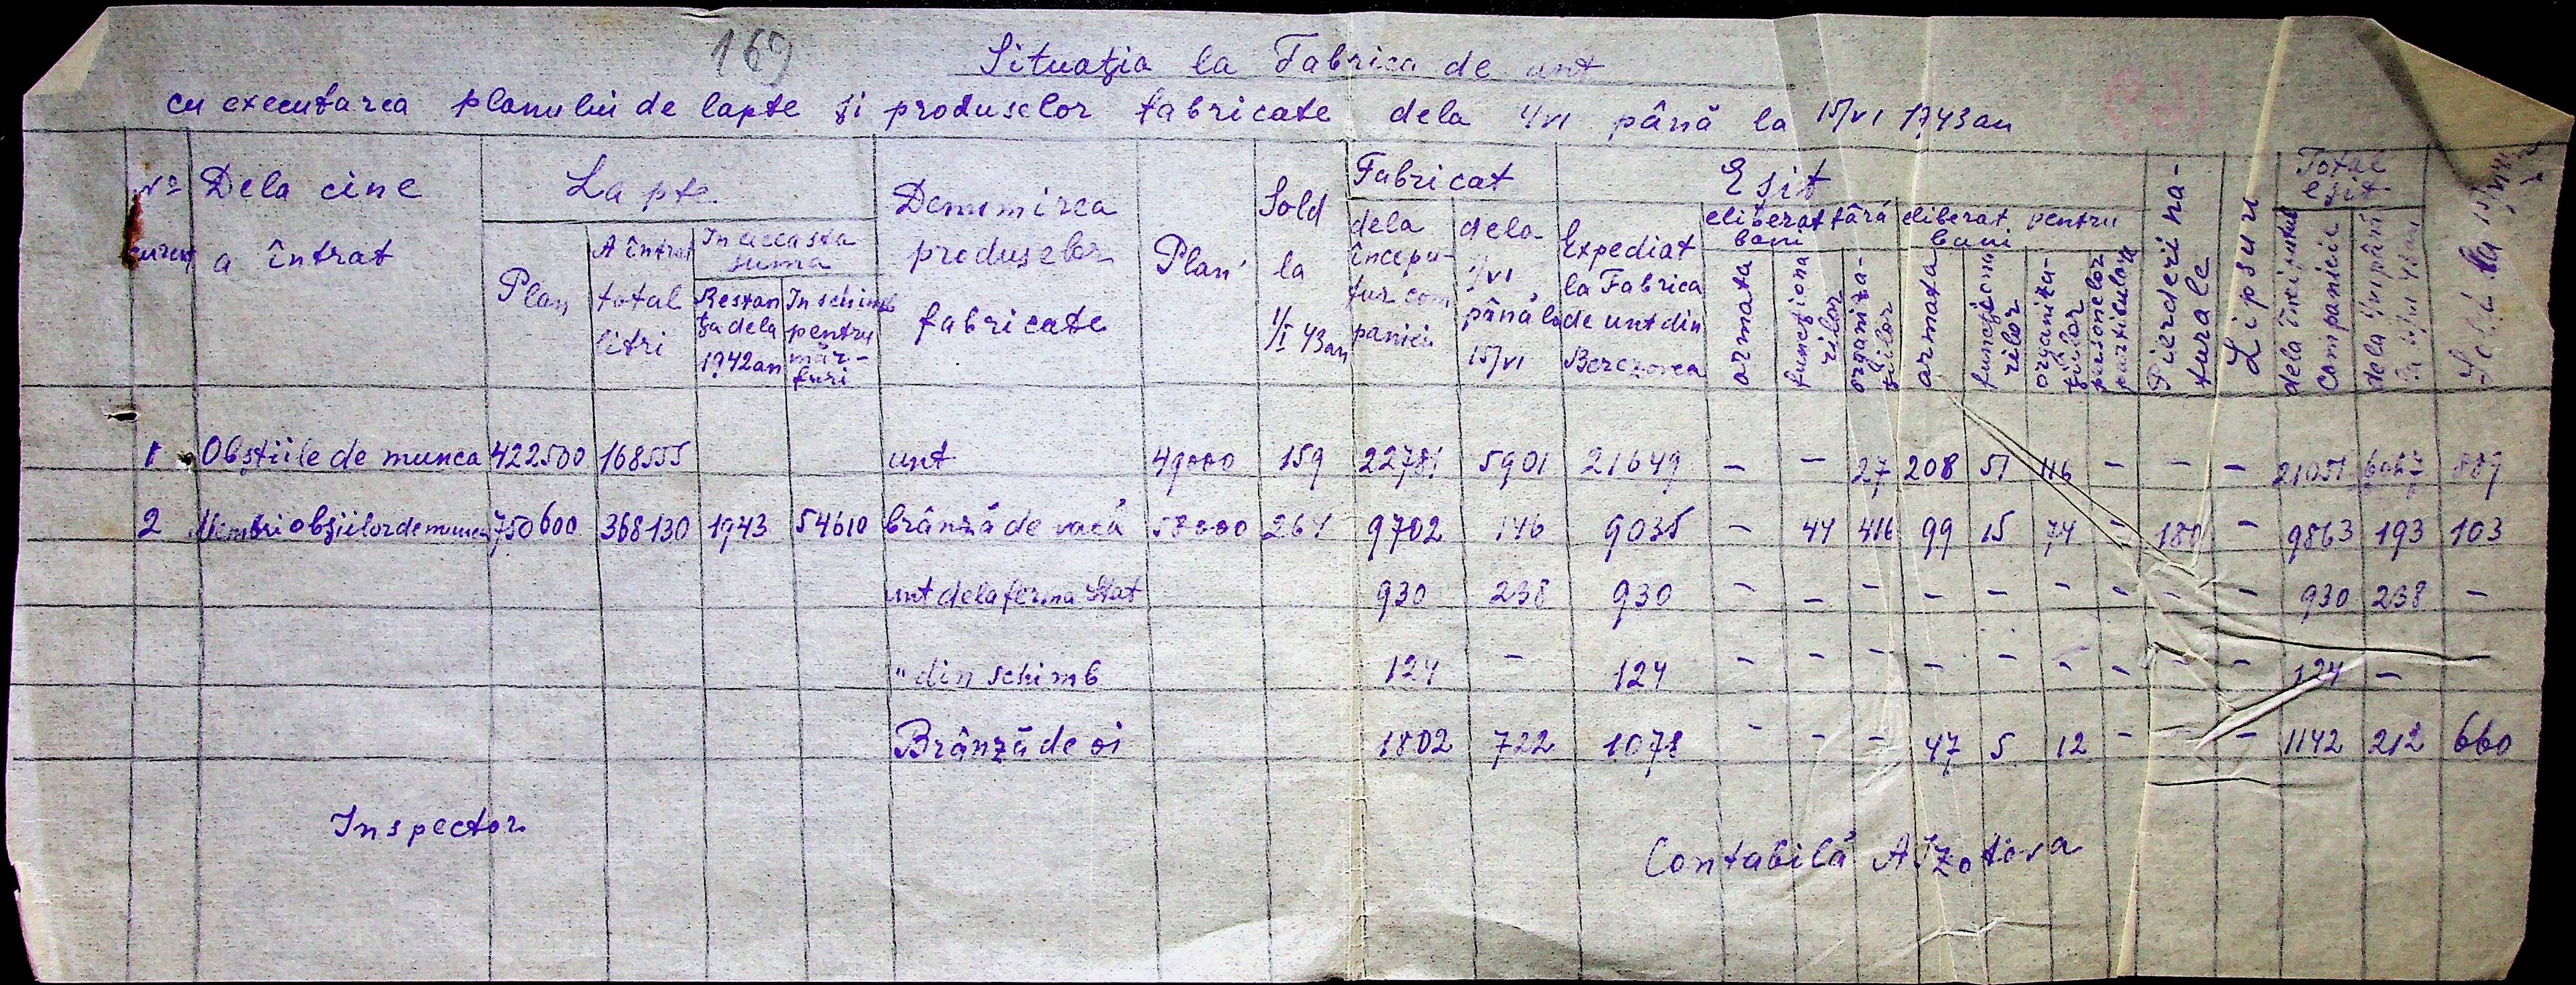 169
Situația la Fabrica de unt
cu executarea planului de lapte și produselor fabricate dela 1/VI până la 15/VI 1943 an
No curent
Dela cine a întrat
Lapte
Plan
A întrat total litri
In aceasta suma
Restanța dela 1942 an
In schimb pentru mărfuri
Denumirea produselor fabricate
Plan
Sold la 1/I 43 an
Fabricat
dela începutur companiei
dela 1/VI până la 15/VI
Eșit
Expediat la Fabrica de unt din Berezovca
eliberat fără bani
armata
funcționarilor
organizațiilor
eliberat pentru bani
armata
funcționarilor
organizațiilor
personelor particulare
Pierderi naturale
Lipsuri
Total eșit
dela începutul companiei
dela 1/VI până la 15/VI 43 an
Sold la 15/VI
1 Obștiile de munca 422500 168555 unt 49000 159 22781 5901 21649 - - 27 208 51 116 - - - 21051 889
2 Membri obșiilor de munca 750600 368130 1943 54610 brânză de vacă 58000 264 9702 146 9035 - 44 416 99 15 74 - 180 - 9863 193 103
unt dela ferma Stat 930 238 930 - - - - - - - - - 930 238 -
" din schimb 124 - 124 - - - - - - - - - 124 -
Brânză de oi 1802 722 1078 - - - 47 5 12 - - - 1142 212 660
Inspector
Contabilă A Izotova